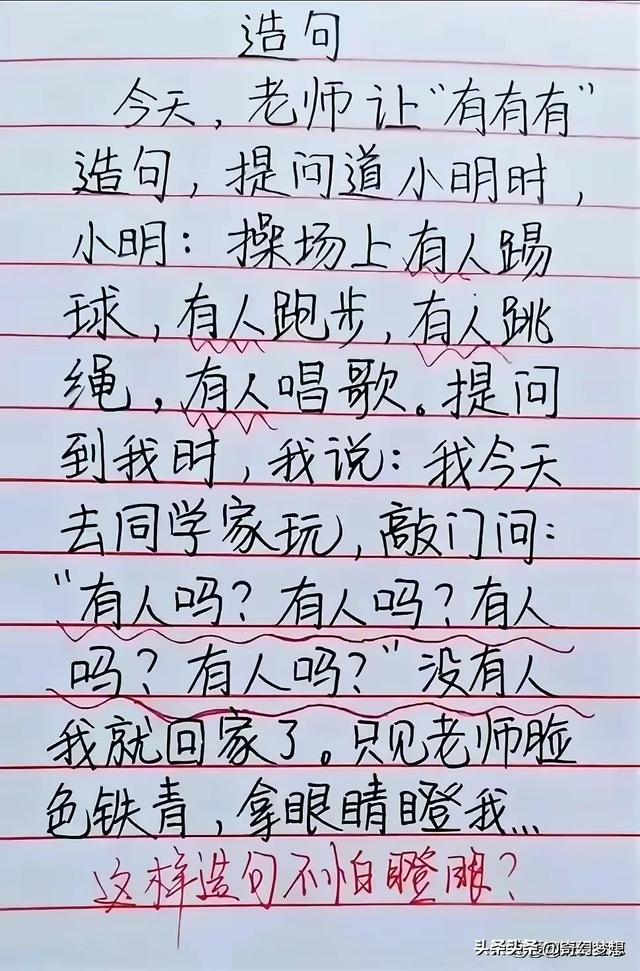 造句
今天，老师让“有有有”
造句，提问道小明时，
小明：操场上有人踢
球，有人跑步，有人跳
绳，有人唱歌。提问
到我时，我说：我今天
去同学家玩，敲门问：
“有人吗？有人吗？有人
吗？有人吗？”没有人
我就回家了。只见老师脸
色铁青，拿眼睛瞪我...
这样造句不怕瞪眼？
头条头条@奇幻梦想